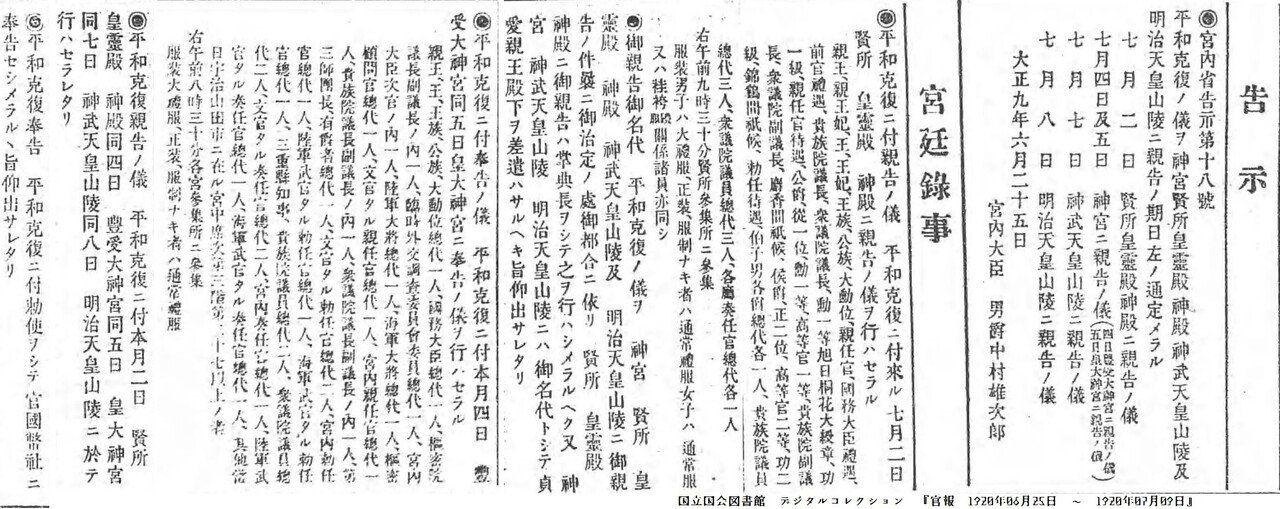 告示
◉宮内省告示第十八號
平和克復ノ儀ヲ 神宮賢所皇靈殿 神殿 神武天皇山陵及
明治天皇山陵ニ親告ノ期日左ノ通定メラル
七月二日 賢所皇靈殿神殿ニ親告ノ儀
七月四日及五日 神宮ニ親告ノ儀(四日豐受大神宮ニ親告ノ儀 五日皇大神宮ニ親告ノ儀)
七月七日 神武天皇山陵ニ親告ノ儀
七月八日 明治天皇山陵ニ親告ノ儀
大正九年六月二十五日
宮內大臣 男爵中村雄次郎
宮廷錄事
◉平和克復ニ付親告ノ儀 平和克復ニ付來ル七月二日
賢所 皇靈殿 神殿ニ親告ノ儀ヲ行ハセラル
親王、親王妃、王、王妃、王族、公族、大勳位、親任官、國務大臣禮遇、
前官禮遇、貴族院議長、衆議院議長、勳一等旭日桐花大綬章、功
一級、親任官待遇、公爵、從一位、勳一等、高等官一等、貴族院副議
長、衆議院副議長、麝香間祗候、侯爵、正二位、高等官二等、功二
級、錦鷄間祗候、勅任待遇、伯子男各爵總代各一人、貴族院議員
總代三人、衆議院議員總代三人、各廳奏任官總代各一人
右午前九時三十分賢所參集所ニ參集
服裝男子ハ大禮服、正裝、服制ナキ者ハ通常禮服女子ハ 通常服
又ハ袿袴 關係諸員亦同シ
◉御親告御名代 平和克復ノ儀ヲ 神宮 賢所 皇
靈殿 神殿 神武天皇山陵及 明治天皇山陵ニ御親
告ノ件曩ニ御治定ノ處御都合ニ依リ 賢所 皇靈殿
神殿ニ御親告ハ掌典長ヲシテ之ヲ行ハシメラルヘク又 神
宮 神武天皇山陵 明治天皇山陵ニハ 御名代トシテ貞
愛親王殿下ヲ差遣ハサルヘキ旨仰出サレタリ
◉平和克復ニ付奉告ノ儀 平和克復ニ付本月四日 豐
受大神宮同五日皇大神宮ニ奉告ノ儀ヲ行ハセラル
親王、王、王族、公族、大勳位總代一人、國務大臣總代一人、樞密院
議長副議長ノ內一人、臨時外交調查委員會委員總代一人、宮內
大臣次官ノ內一人、陸軍大將總代一人、海軍大將總代一人、樞密
顧問官總代一人、文官タル親任官總代一人、宮內親任官總代一
人、貴族院議長副議長ノ內一人、衆議院議長副議長ノ內一人、第
三師團長、有爵者總代一人、文官タル勅任官總代一人、宮內勅任
官總代一人、陸軍武官タル勅任官總代一人、海軍武官タル勅任
官總代一人、三重縣知事、貴族院議員總代二人、衆議院議員總
代二人、文官タル奏任官總代一人、宮內奏任官總代一人、陸軍武
官タル奏任官總代一人、海軍武官タル奏任官總代一人、其他當
日宇治山田市ニ在ル宮中席次第三階第二十七以上ノ者
右午前八時三十分各宮參集所ニ參集
服裝大禮服、正裝、服制ナキ者ハ通常禮服
◉平和克復親告ノ儀 平和克復ニ付本月二日 賢所
皇靈殿 神殿同四日 豐受大神宮同五日 皇大神宮
同七日 神武天皇山陵同八日 明治天皇山陵ニ於テ
行ハセラレタリ
◉平和克復奉告 平和克復ニ付勅使ヲシテ官國幣社ニ
奉告セシメラルヽ旨仰出サレタリ
国立国会図書館 デジタルコレクション 『官報 1920年06月25日 ～ 1920年07月09日』